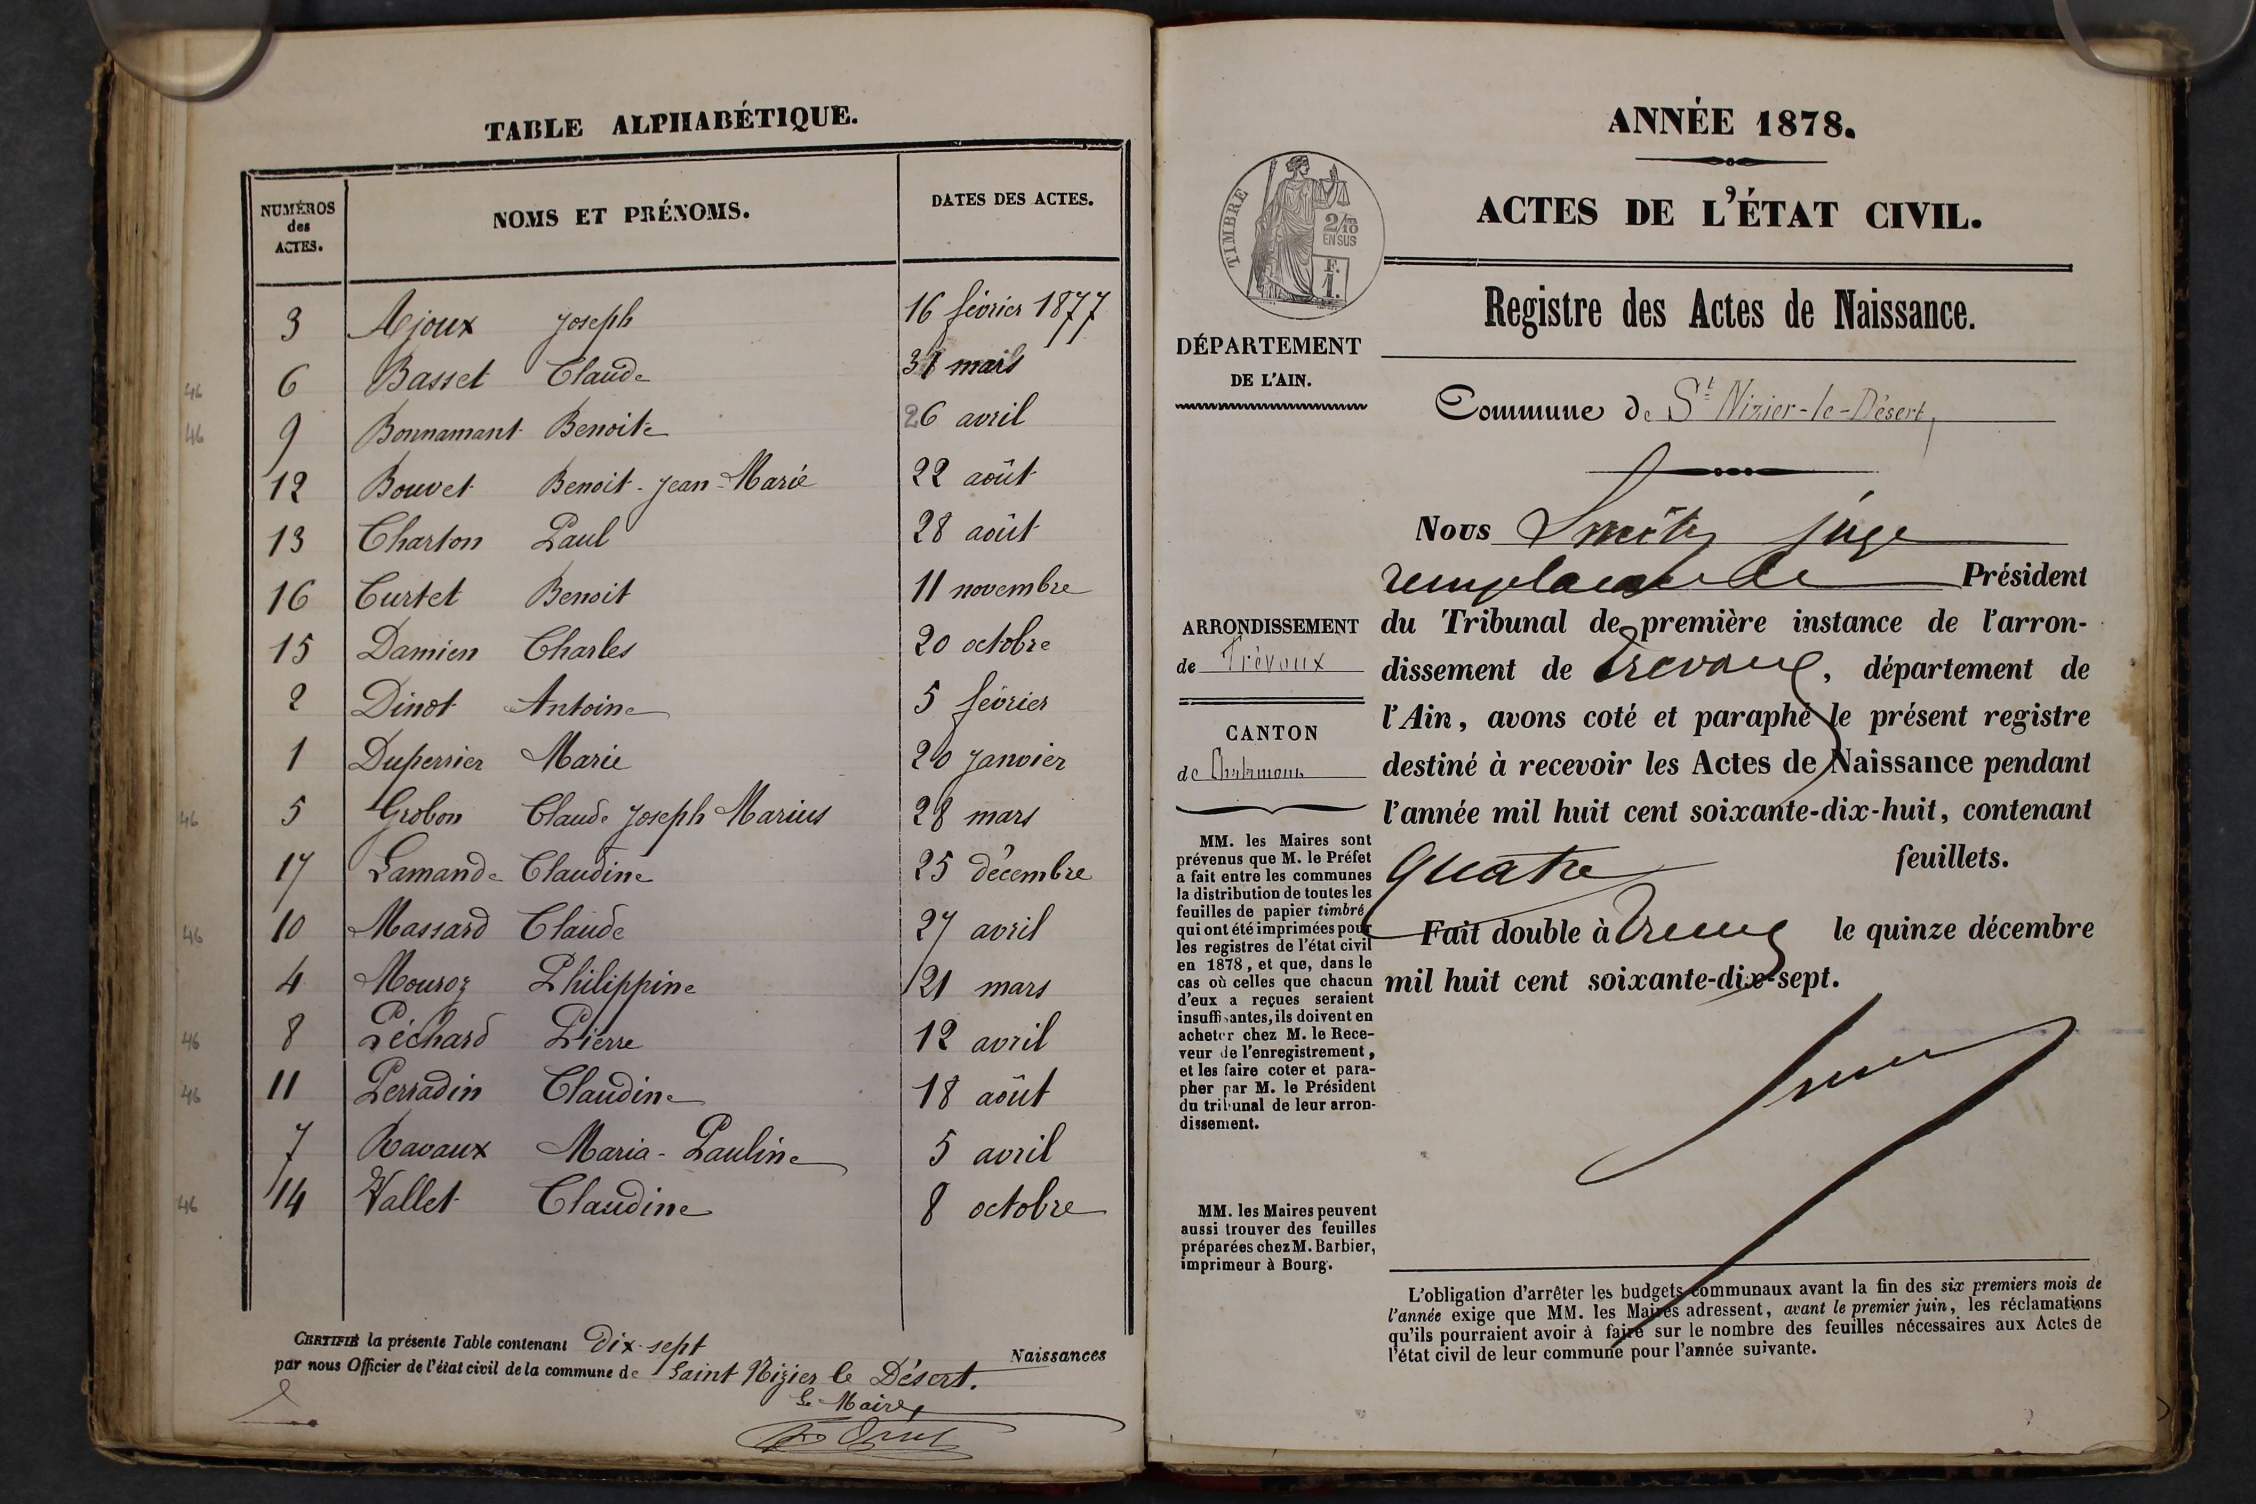 TABLE ALPHABÉTIQUE.
NUMÉROS des ACTES. NOMS ET PRÉNOMS. DATES DES ACTES.
3 Ajoux Joseph 16 février 1877
46 6 Basset Claude 31 mars
46 9 Bonnamant Benoite 26 avril
12 Bouvet Benoit-Jean-Marie 22 août
13 Charton Paul 28 août
16 Curtet Benoit 11 novembre
15 Damien Charles 20 octobre
2 Dinot Antoine 5 février
1 Duperrier Marie 20 janvier
46 5 Grobon Claude Joseph Marius 28 mars
17 Lamande Claudine 25 décembre
46 10 Massard Claude 27 avril
4 Mouroz Philippine 21 mars
46 8 Péchard Pierre 12 avril
46 11 Perradin Claudine 18 août
7 Ravaux Maria-Pauline 5 avril
46 14 Vallet Claudine 8 octobre
CERTIFIÉ la présente Table contenant Dix-sept Naissances
par nous Officier de l'état civil de la commune de Saint Nizier le Désert.
Le Maire,
ANNÉE 1878.
ACTES DE L'ÉTAT CIVIL.
TIMBRE
2/10 m
EN SUS
F.
1.
Registre des Actes de Naissance.
DÉPARTEMENT
DE L'AIN.
Commune de St Nizier-le-Désert,
Nous juge
remplaçant le Président
du Tribunal de première instance de l'arron-
dissement de Trévoux, département de
l'Ain, avons coté et paraphé le présent registre
destiné à recevoir les Actes de Naissance pendant
l'année mil huit cent soixante-dix-huit, contenant
quatre feuillets.
Fait double à Trévoux le quinze décembre
mil huit cent soixante-dix-sept.
ARRONDISSEMENT
de Trévoux
CANTON
de Chalamont
MM. les Maires sont
prévenus que M. le Préfet
a fait entre les communes
la distribution de toutes les
feuilles de papier timbré
qui ont été imprimées pour
les registres de l'état civil
en 1878, et que, dans le
cas où celles que chacun
d'eux a reçues seraient
insuffisantes, ils doivent en
acheter chez M. le Rece-
veur de l'enregistrement,
et les faire coter et para-
pher par M. le Président
du tribunal de leur arron-
dissement.
MM. les Maires peuvent
aussi trouver des feuilles
préparées chez M. Barbier,
imprimeur à Bourg.
L'obligation d'arrêter les budgets communaux avant la fin des six premiers mois de
l'année exige que MM. les Maires adressent, avant le premier juin, les réclamations
qu'ils pourraient avoir à faire sur le nombre des feuilles nécessaires aux Actes de
l'état civil de leur commune pour l'année suivante.